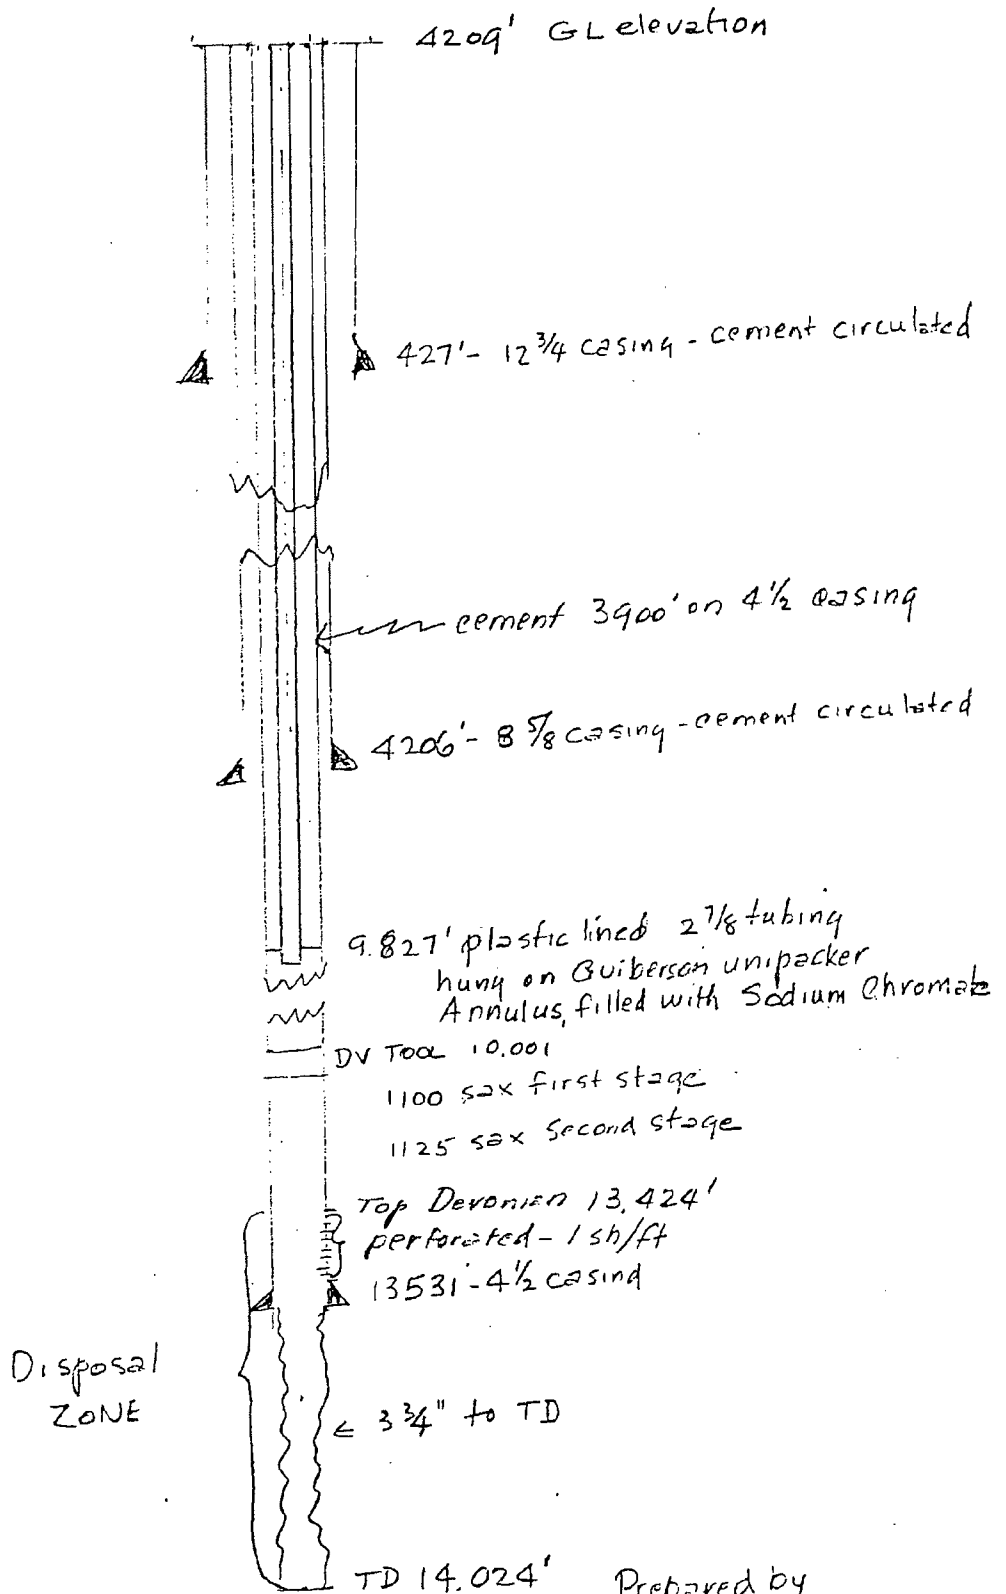 4209' GL elevation
427' - 12 3/4 casing - cement circulated
cement 3900' on 4 1/2 casing
4206' - 8 5/8 casing - cement circulated
9.827' plastic lined 2 7/8 tubing
hung on Guiberson unipacker
Annulus, filled with Sodium Chromate
DV TOOL 10.001
1100 sax first stage
1125 sax Second stage
Top Devonian 13,424'
perforated - 1 sh/ft
13531' - 4 1/2 casind
Disposal
ZONE
3 3/4" to TD
TD 14.024'
Prepared by